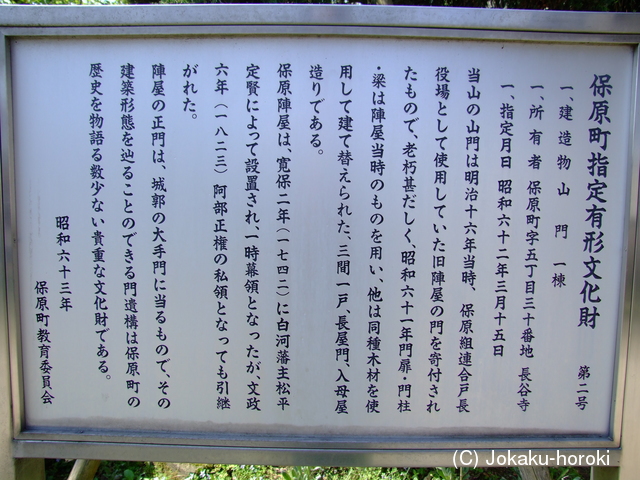 保原町指定有形文化財　第二号
一、建造物　山　門　一棟
一、所有者　保原町字五丁目三十番地　長谷寺
一、指定月日　昭和六十二年三月十五日
当山の山門は明治十六年当時、保原組連合戸長
役場として使用していた旧陣屋の門を寄付され
たもので、老朽甚だしく、昭和六十一年門扉・門柱
・梁は陣屋当時のものを用い、他は同種木材を使
用して建て替えられた、三間一戸、長屋門、入母屋
造りである。
保原陣屋は、寛保二年（一七四二）に白河藩主松平
定賢によって設置され、一時幕領となったが、文政
六年（一八二三）阿部正権の私領となっても引継
がれた。
陣屋の正門は、城郭の大手門に当るもので、その
建築形態を辿ることのできる門遺構は保原町の
歴史を物語る数少ない貴重な文化財である。
昭和六十三年
保原町教育委員会
(C) Jokaku-horoki